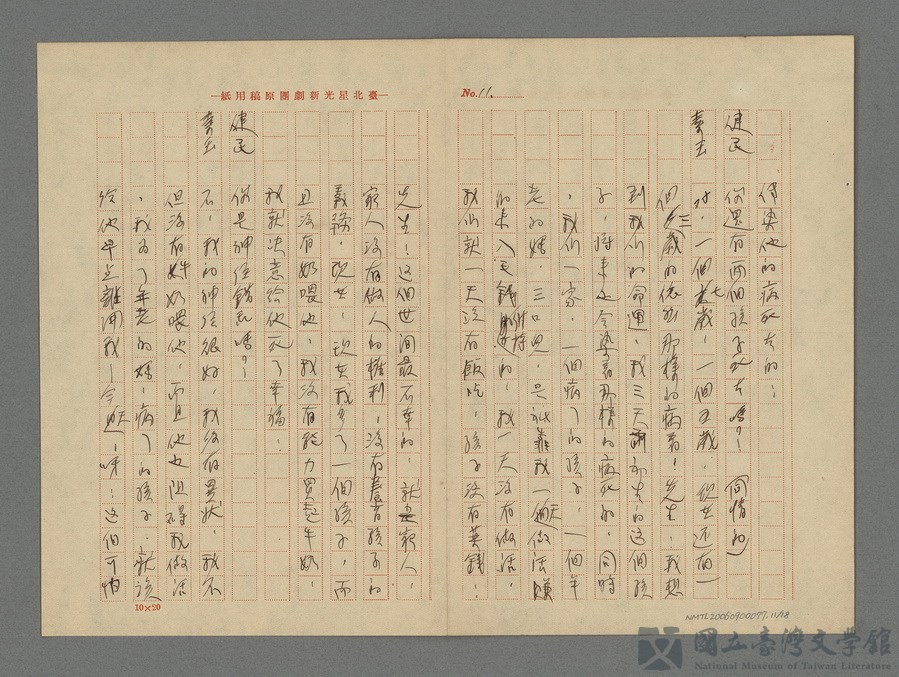 —臺北星光新劇團原稿用紙—
No. 11.
傳染他的病死去的：
健民 你還有兩個孩子死去嗎？ 同情的
秦去 对，一個七歲，一個五歲，現在还有一
個三歲的依然那樣的病着！先生！我想
到我们的命運，我三天前初生的这個孩
子，將來也会染着那樣的病死的，同時
，我们一家，一個病了的孩子，一個年
老的媽，三口児，只祗靠我一個做活賺
的来入民，我一天沒有做活，
我们就一天沒有飯吃，孩子沒有葯錢：
先生！這個世间最不幸的，就是窮人：
窮人沒有做人的權利，沒有養育孩子的
義務，現在，現在我多了一個孩子，而
且沒有奶喂他，我沒有能力買起牛奶，
我就決意給他死了幸福：
健民 你是神经錯乱嗎？
秦去 不，我的神经很好，我沒有異狀，我不
但沒有奶喂他，而且他也阻碍我做活
，我为了年老的媽，病了的孩子，就該
给他早点離開我！今天！呀！这個可怕
10×20
NMTL20050900077.11/18
國立臺灣文學館
National Museum of Taiwan Literature